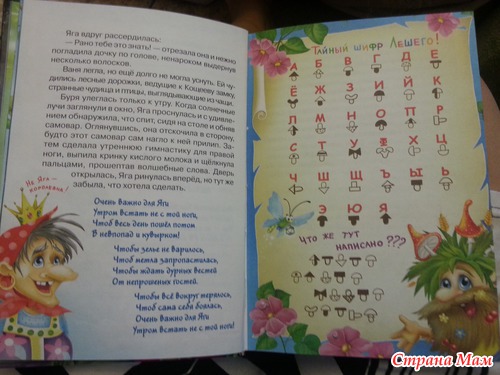 Яга вдруг рассердилась:
— Рано тебе это знать! — отрезала она и нежно
погладила дочку по голове, ненароком выдернув
несколько волосков.
Ваня легла, но ещё долго не могла уснуть. Ей чу-
дились лесные дорожки, ведущие к Кощееву замку,
странные чудища и птицы, выглядывающие из чащи.
Буря улеглась только к утру. Когда солнечные
лучи заглянули в окно, Яга проснулась и с удивле-
нием обнаружила, что спит, сидя на столе и обняв
самовар. Оглянувшись, она отскочила в сторону,
будто этот самовар сам нагло к ней прилип. За-
тем сделала утреннюю гимнастику для правой
ноги, выпила кринку кислого молока и щёлкнула
пальцами, прошептав волшебные слова. Дверь
открылась, Яга ринулась вперёд, но тут же
забыла, что хотела сделать.
Не Яга —
королевна!
Очень важно для Яги
Утром встать не с той ноги,
Чтоб весь день пошёл потом
В невпопад и кувырком!
Чтобы зелье не варилось,
Чтоб метла запропастилась,
Чтобы ждать дурных вестей
От непрошеных гостей.
Чтобы всё вокруг терялось,
Чтоб сама себя боялась,
Очень важно для Яги
Утром встать не с той ноги!
Тайный шифр Лешего!
А Б В Г Д Е
Ё Ж З И Й К
Л М Н О П Р
С Т У Ф Х Ц
Ч Ш Щ Ъ Ы Ь
Э Ю Я
Что же тут
написано ???
Страна Мам